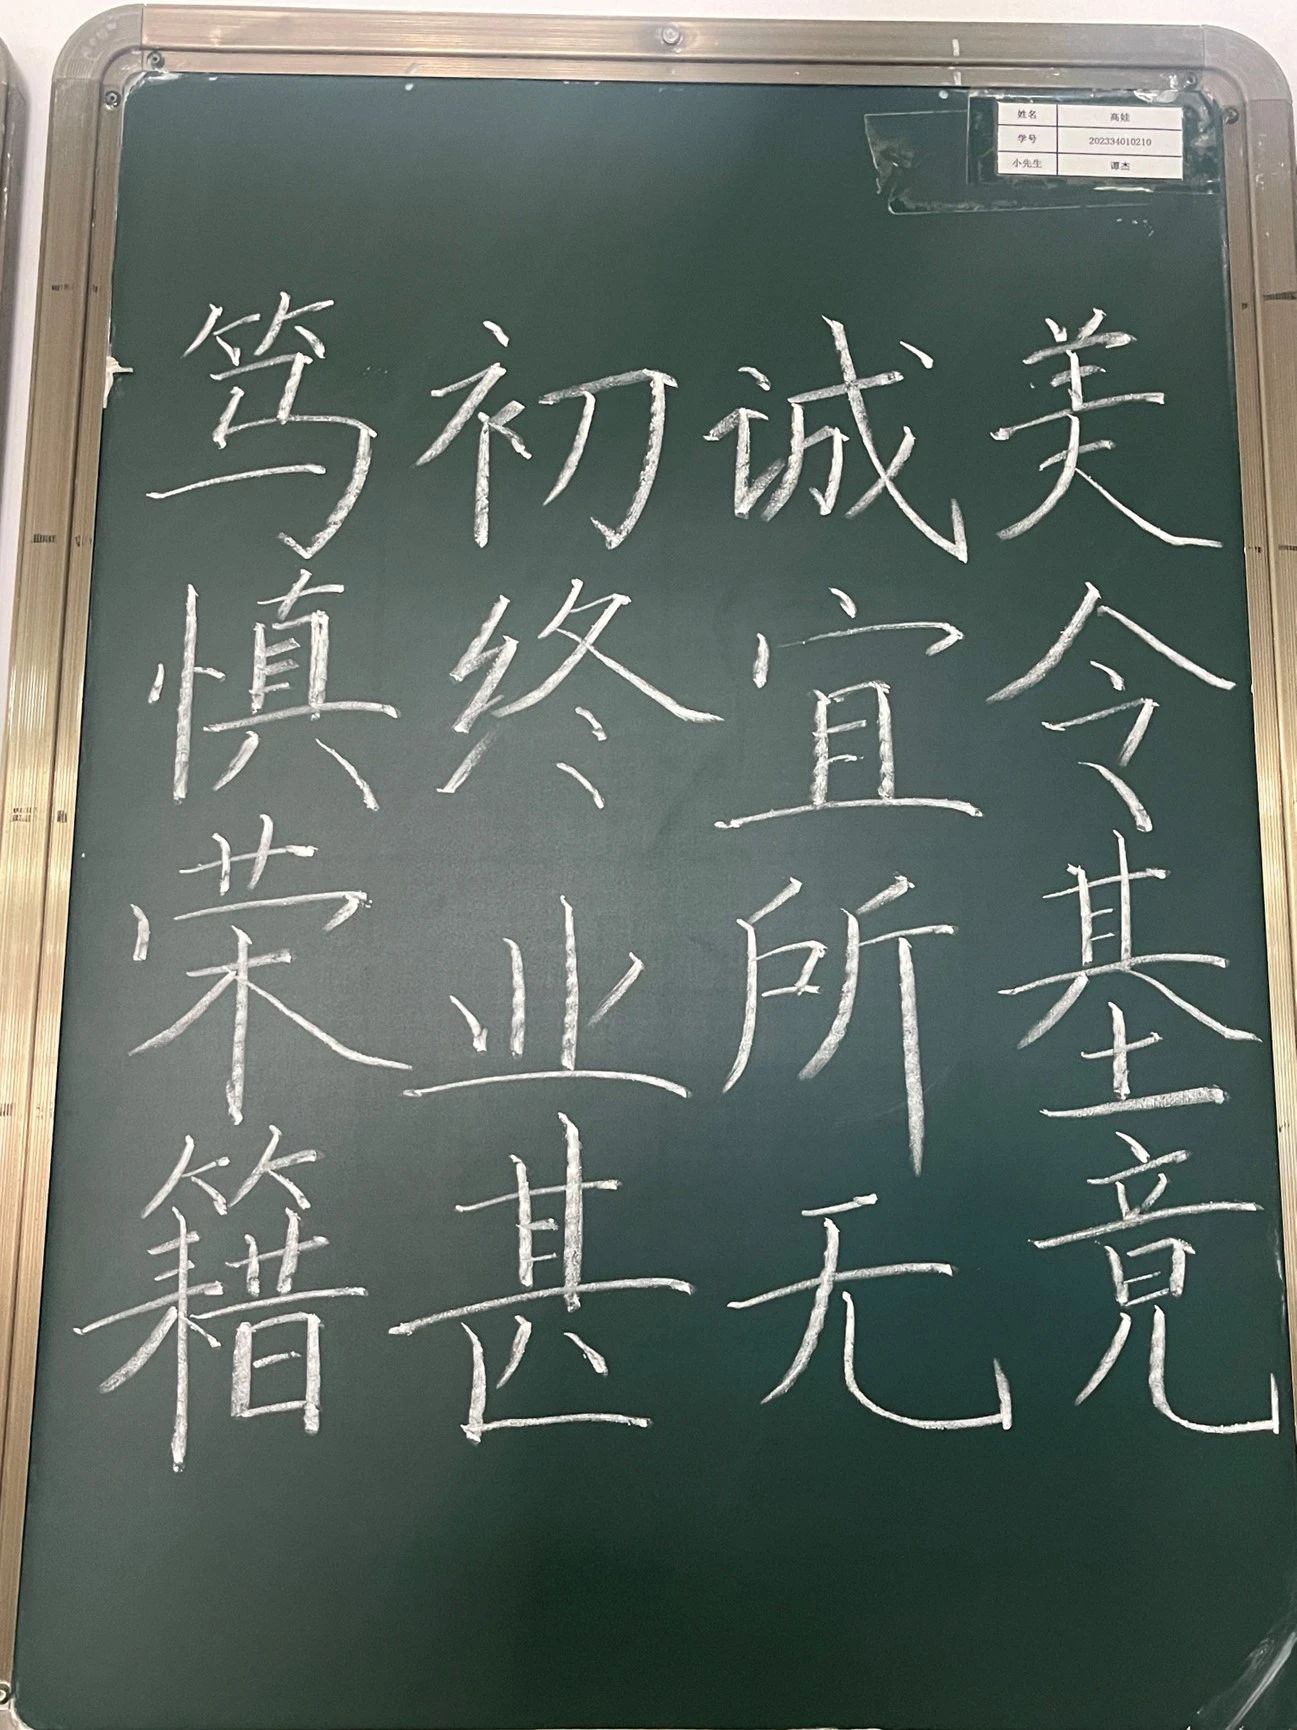 姓名 高娃
学号 202334010210
小先生 谭杰
笃初诚美
慎终宜令
荣业所基
籍甚无竟